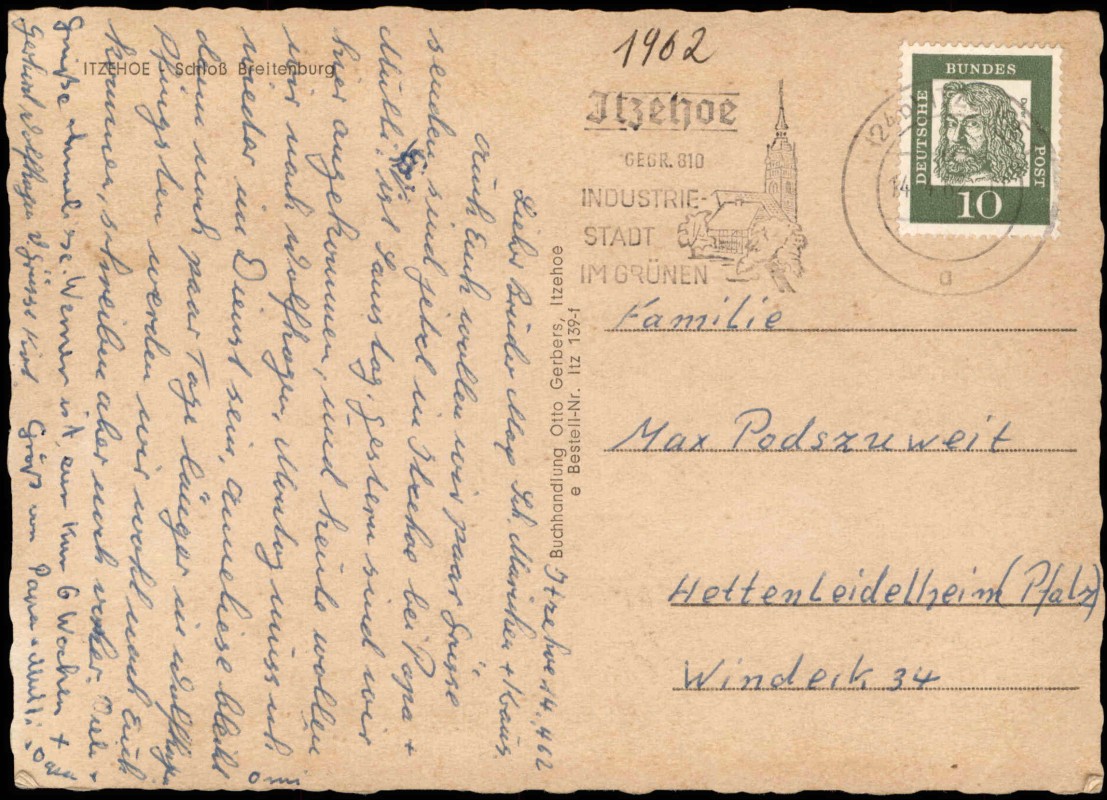 ITZEHOE - Schloß Breitenburg
1962
Itzehoe
GEGR. 810
INDUSTRIE-
STADT
IM GRÜNEN
(24b)
14.
a
DEUTSCHE BUNDES POST
10
Familie
Max Podszuweit
Hettenleidelheim (Pfalz)
Windeck 34
Buchhandlung Otto Gerbers, Itzehoe
e Bestell-Nr. Itz 139-f
Itzehoe 14.4.62
Lieber Bruder Max, Lb. Mariechen + Hans,
Auch Euch wollen wir paar Grüsse
senden, sind jetzt in Itzehoe bei Papa +
Mutti. ist Samstag, gestern sind wir
hier angekommen, und heute wollen
wir nach Wolfhagen, Montag muss ich
wieder im Dienst sein, Anneliese bleibt
dann noch paar Tage länger in Wolfhagen
Pfingsten werden wir wohl nach Euch
kommen, schreiben aber noch vorher. Viele
Grüße Anneliese. Werner ist zur Kur 6 Wochen +
Gerhard Wolfhagen Grüsse Kurt
Gruß von Papa + Mutti
Opa
Omi